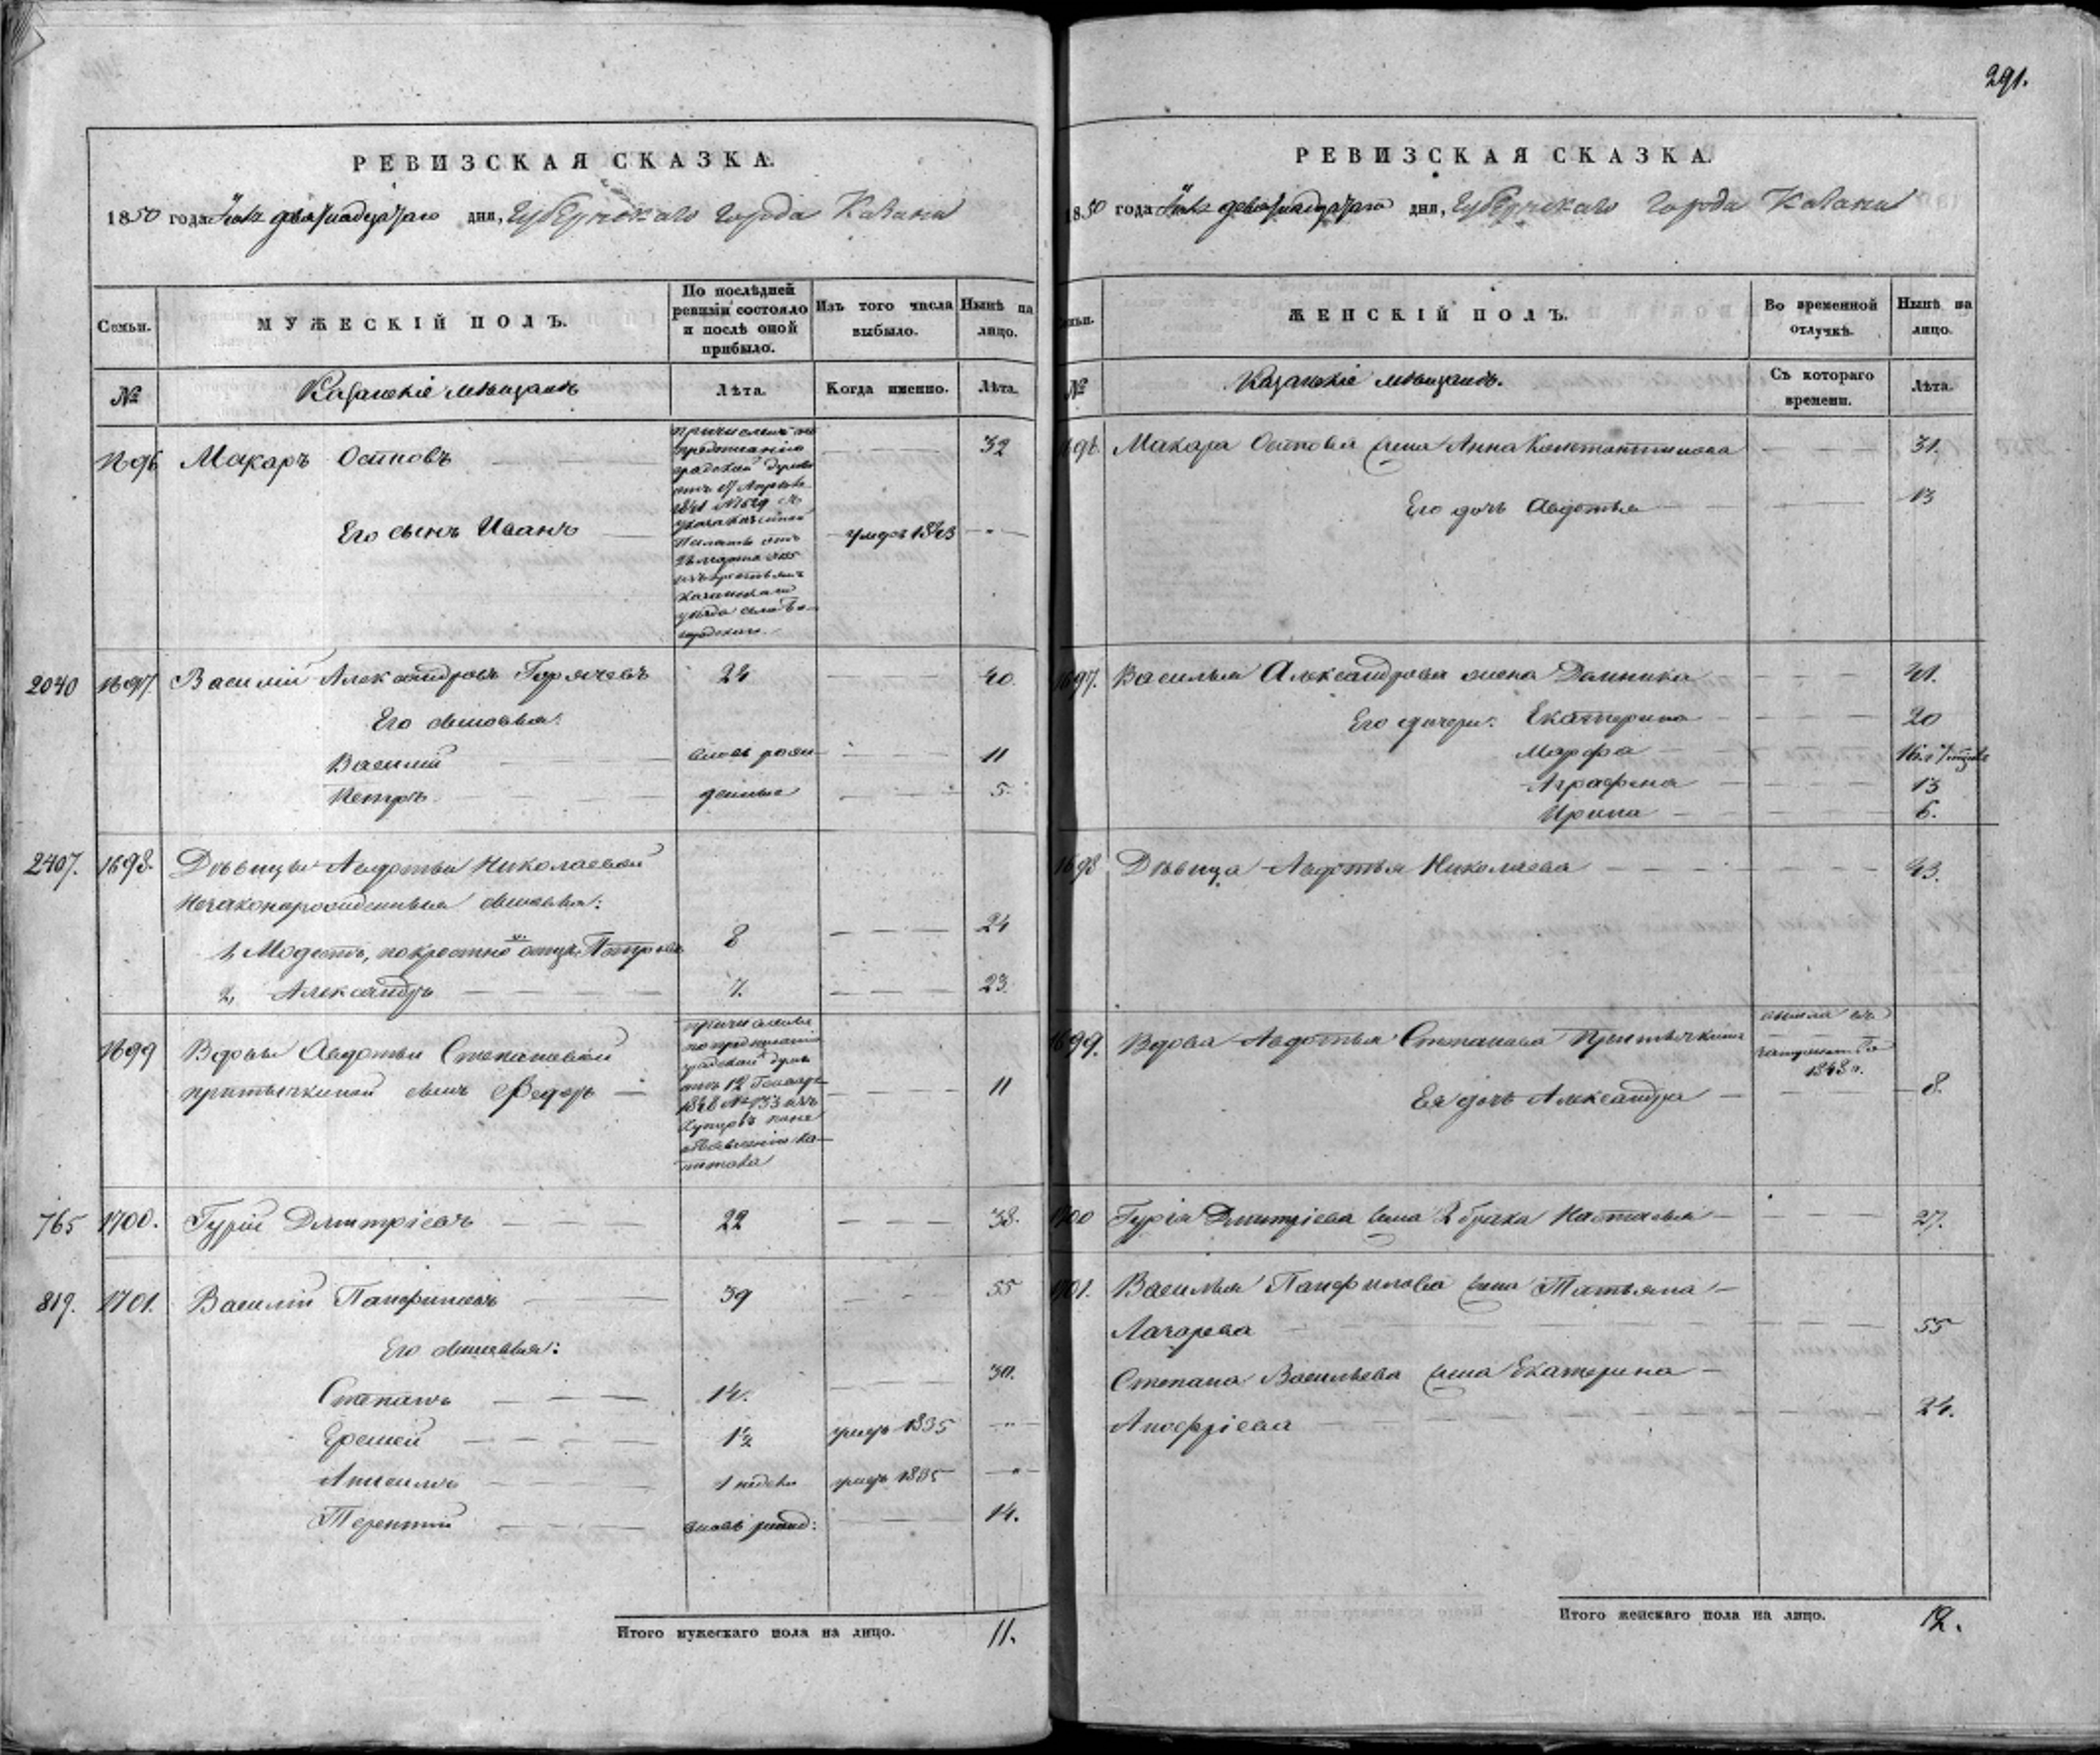 291.
РЕВИЗСКАЯ СКАЗКА.
1850 года дня, Губернскаго города Казани
Семьи.
МУЖЕСКІЙ ПОЛЪ.
По послѣдней ревизіи состояло и послѣ оной прибыло.
Изъ того числа выбыло.
Нынѣ на лицо.
№
Казанскіе мѣщане
Лѣта.
Когда именно.
Лѣта.
1696 Макаръ Осиповъ 32
причисленъ по
предписанію
градской Думы
отъ 17 Апрѣля
1841 №1529
Палаты отъ
Казанскаго
уѣзда села
Его сынъ Иванъ умеръ 1843
2040 1697. Василій Александровъ Горячевъ 24 40.
Его сыновья:
Василій вновь рож 11
Петръ денные 5.
2407. 1698. Дѣвицы Авдотьи Николаевой
незаконорожденныя сыновья:
1, Модестъ, по крестно отцу Петровъ 8 24
2, Александръ 7. 23.
1699 Вдовы Авдотьи Степановой
сынъ Федоръ 11
причислены
по предписанію
градской Думы
отъ 12 Генваря
1848 №133 изъ
купцовъ по не
объявленію ка-
питала
765 1700. Гурій Дмитріевъ 22 38.
819. 1701. Василій Панфиловъ 39 55
Его сыновья:
Степанъ 14. 30.
Еремей 1½ умеръ 1835
Анисимъ 1 недели умеръ 1835
Терентій вновь рожд: 14.
Итого мужескаго пола на лицо. 11.
РЕВИЗСКАЯ СКАЗКА.
1850 года дня, Губернскаго города Казани
Семьи.
ЖЕНСКІЙ ПОЛЪ.
Во временной отлучкѣ.
Нынѣ на лицо.
№
Казанскіе мѣщане.
Съ котораго времени.
Лѣта.
1696. Макара Осипова жена Анна Константинова 31.
Его дочь Авдотья 13
1697. Василья Александрова жена Домника 41.
Его дочери: Екатерина 20
Марфа 16
Аграфена 13
Ирина 6.
1698 Дѣвица Авдотья Николаева 43.
1699. Вдова Авдотья Степанова
вышла въ
замужество
1848 г.
Ея дочь Александра 8.
1700 Гурія Дмитріева жена 2 брака Настасья 27.
1701. Василья Панфилова жена Татьяна
Лазарева 55
Степана Васильева жена Екатерина
24.
Итого женскаго пола на лицо. 12.